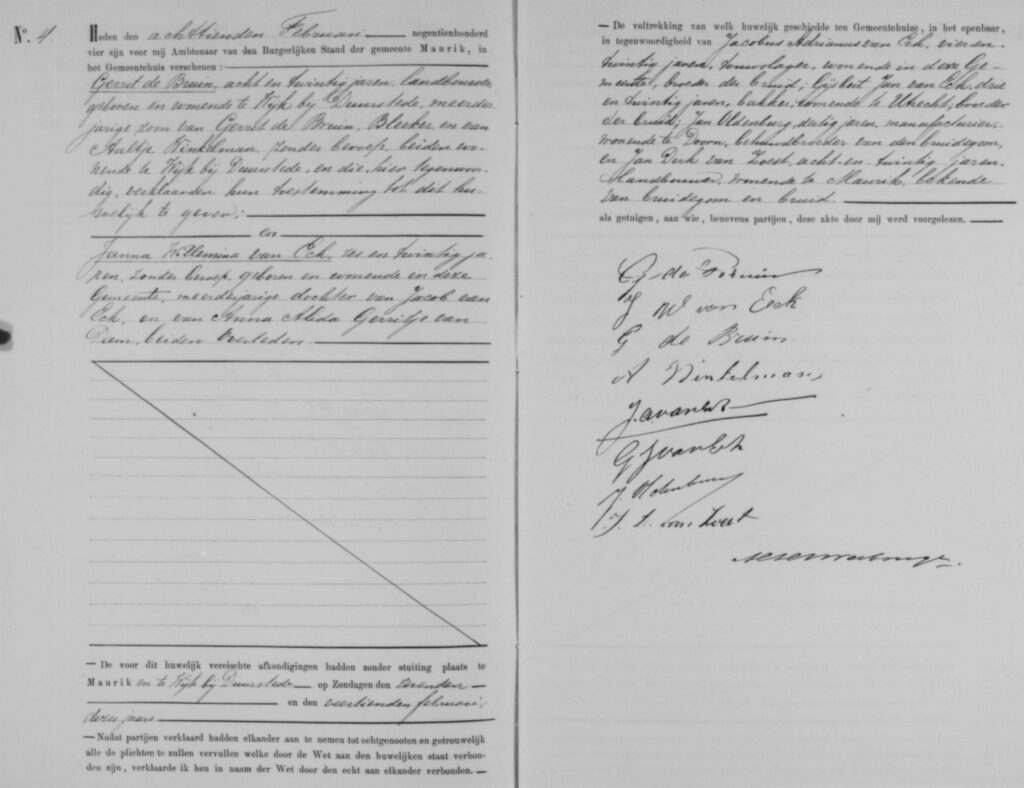 No. 4.
Heden den achttienden Februari negentienhonderd
vier zijn voor mij Ambtenaar van den Burgerlijken Stand der gemeente Maurik, in
het Gemeentehuis verschenen:
Gerrit de Bruin, acht en twintig jaren, landbouwer
geboren en wonende te Wijk bij Duurstede, meerder-
jarige zoon van Gerrit de Bruin, Bleeker en van
Aaltje Winkelman, zonder beroep, beiden wo-
nende te Wijk bij Duurstede, en die, hier tegenwoor-
dig, verklaarden hun toestemming tot dit hu-
welijk te geven;
en
Janna Willemina van Eck, zes en twintig ja-
ren, zonder beroep, geboren en wonende in deze
Gemeente, meerderjarige dochter van Jacob van
Eck, en van Anna Alida Gerritje van
Diem, beiden overleden.
— De voor dit huwelijk vereischte afkondigingen hadden zonder stuiting plaats te
Maurik en te Wijk bij Duurstede op Zondagen den zevenden
en den veertienden februari
dezes jaars
— Nadat partijen verklaard hadden elkander aan te nemen tot echtgenooten en getrouwelijk
alle de plichten te zullen vervullen welke door de Wet aan den huwelijken staat verbon-
den zijn, verklaarde ik hen in naam der Wet door den echt aan elkander verbonden. —
— De voltrekking van welk huwelijk geschiedde ten Gemeentehuize, in het openbaar,
in tegenwoordigheid van Jacobus Adrianus van Eck, vier en
twintig jaren, touwslager, wonende in deze Ge-
meente, broeder der bruid; Gijsbert Jan van Eck, drie
en twintig jaren, bakker, wonende te Utrecht, broeder
der bruid; Jan Oldenburg, dertig jaren, manufacturier,
wonende te Doorn, behuwdbroeder van den bruidegom,
en Jan Dirk van Zoest, acht en twintig jaren,
landbouwer, wonende te Maurik, bekende
van bruidegom en bruid.
als getuigen, aan wie, benevens partijen, deze akte door mij werd voorgelezen.
G de Bruin
J W van Eck
G de Bruin
A Winkelman
J.A van Eck
G J van Eck
J. Oldenburg
J. D. van Zoest